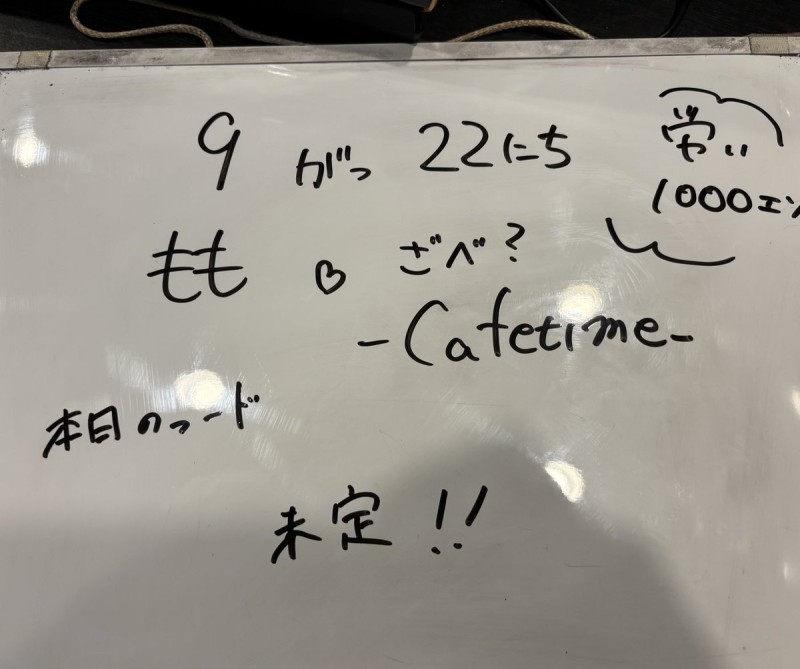 9 がつ 22にち
1000エン
もも ♡ ざべ?
-Cafetime-
本日のフード
未定!!